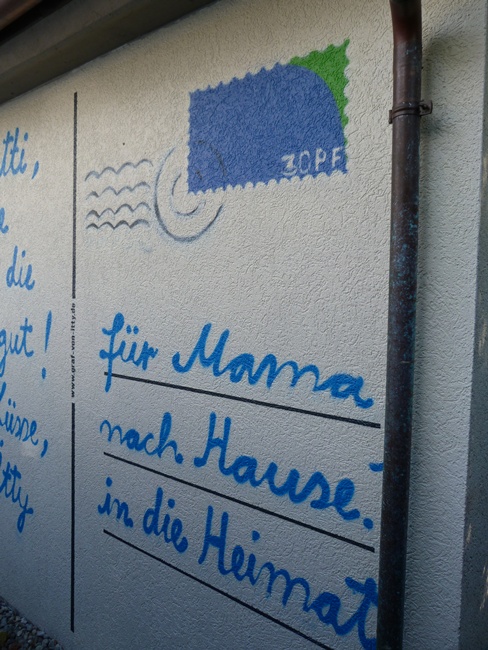 die
gut!
30PF
www.graf-von-itty.de
für Mama
nach Hause.
in die Heimat